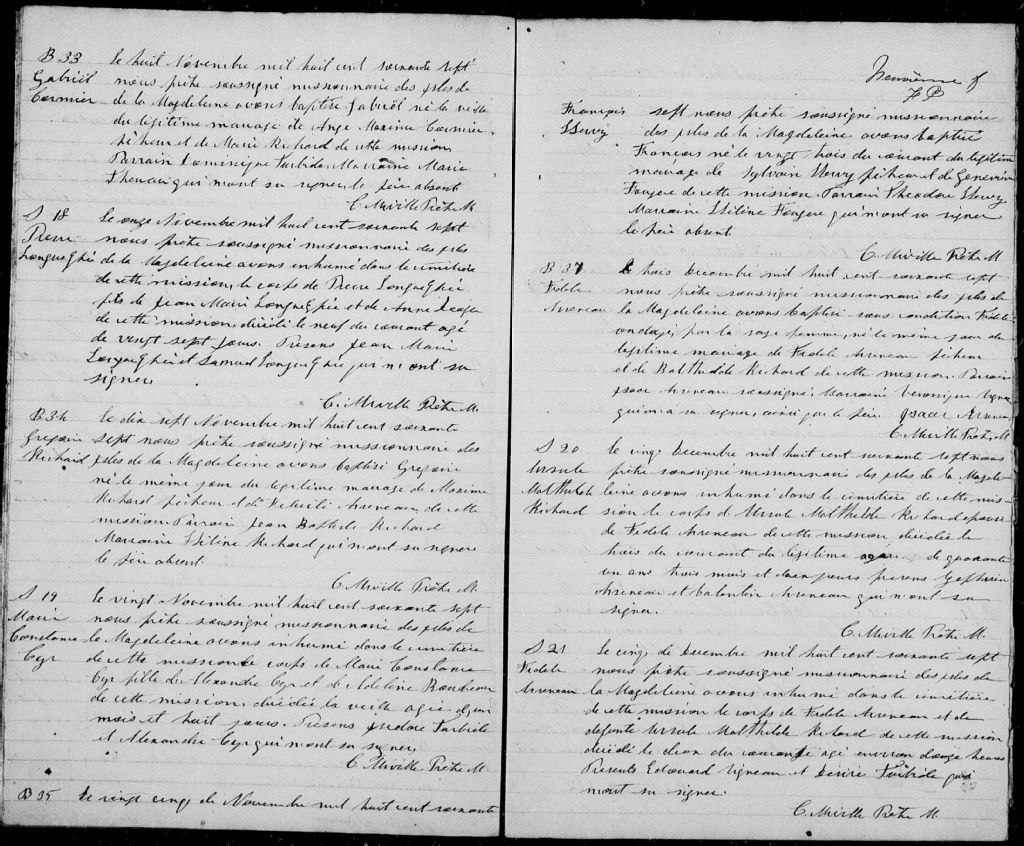 B 33 Le huit Novembre mil huit cent soixante sept
Gabriël nous prêtre soussigné missionnaire des isles de
Cormier de la Magdeleine avons baptisé Gabriël né la veille
du légitime mariage de Ange Maxime Cormier
pêcheur et de Marie Richard de cette mission
Parrain Dominique Turbide Marraine Marie
qui n'ont su signer, le père absent
C. Miville Prêtre M.
S 18 Le onze Novembre mil huit cent soixante sept
Pierre nous prêtre soussigné missionnaire des isles
Longuephée de la Magdeleine avons inhumé dans le cimitière
de cette mission, le corps de Pierre Longuephée
fils de Jean Marie Longuephée et de Anne
de cette mission, décédé le neuf du courant agé
de vingt sept jours. Présens Jean Marie
Longuephée et Samuel Longuephée qui n'ont su
signer.
C. Miville Prêtre M.
B 34 Le dix sept Novembre mil huit cent soixante
Gregoire sept nous prêtre soussigné missionnaire des
Richard isles de la Magdeleine avons baptisé Gregoire
né le meme jour du légitime mariage de Maxime
Richard pêcheur et de Félicité Arseneau de cette
mission. Parrain Jean Baptiste Richard
Marraine Hélène Richard qui n'ont su signer
le père absent.
C. Miville Prêtre M.
S 19 Le vingt Novembre mil huit cent soixante sept
Marie nous prêtre soussigné missionnaire des isles de
Constance la Magdeleine avons inhumé dans le cimitière
Cyr de cette mission le corps de Marie Constance
Cyr fille de Alexandre Cyr et de Adeline Boudreau
de cette mission, décédée la veille agée d'un
mois et huit jours. Présens Isidore Turbide
et Alexandre Cyr qui n'ont su signer
C. Miville Prêtre M.
B 35 Le vingt cinq de Novembre mil huit cent soixante
François sept nous prêtre soussigné missionnaire
des isles de la Magdeleine avons baptisé
François né le vingt trois du courant du légitime
mariage de Sylvain pêcheur et de Geneviève
de cette mission. Parrain Théodore
Marraine Hélène qui n'ont su signer
le père absent.
C. Miville Prêtre M.
B 37 Le trois Decembre mil huit cent soixante sept
Fidele nous prêtre soussigné missionnaire des isles de
Arseneau la Magdeleine avons baptisé sous condition Fidele
ondoyé, par la sage femme, né le même jour du
légitime mariage de Fidele Arseneau pêcheur
et de Mathilde Richard de cette mission. Parrain
Isaac Arseneau soussigné, Marraine Veronique
qui n'a su signer, ainsi que le père Isaac Arseneau
C. Miville Prêtre M.
S 20 Le cinq Decembre mil huit cent soixante sept nous
Ursule prêtre soussigné missionnaire des isles de la Magde
Mathilde leine avons inhumé dans le cimitière de cette mis
Richard sion le corps d'Ursule Mathilde Richard épouse
de Fidele Arseneau de cette mission, décédée le
trois du courant agée de quarante
un ans trois mois et deux jours présens Zephirin
Arseneau et Valentin Arseneau qui n'ont su
signer.
C. Miville Prêtre M.
S 21 Le cinq de Decembre mil huit cent soixante sept
Fidele nous prêtre soussigné missionnaire des isles de
Arseneau la Magdeleine avons inhumé dans le cimitière
de cette mission le corps de Fidele Arseneau et de
defunte Ursule Mathilde Richard de cette mission
décédé le du courant agé environ douze heures
Présents Edouard Vigneau et Désiré Turbide qui
n'ont su signer.
C. Miville Prêtre M.